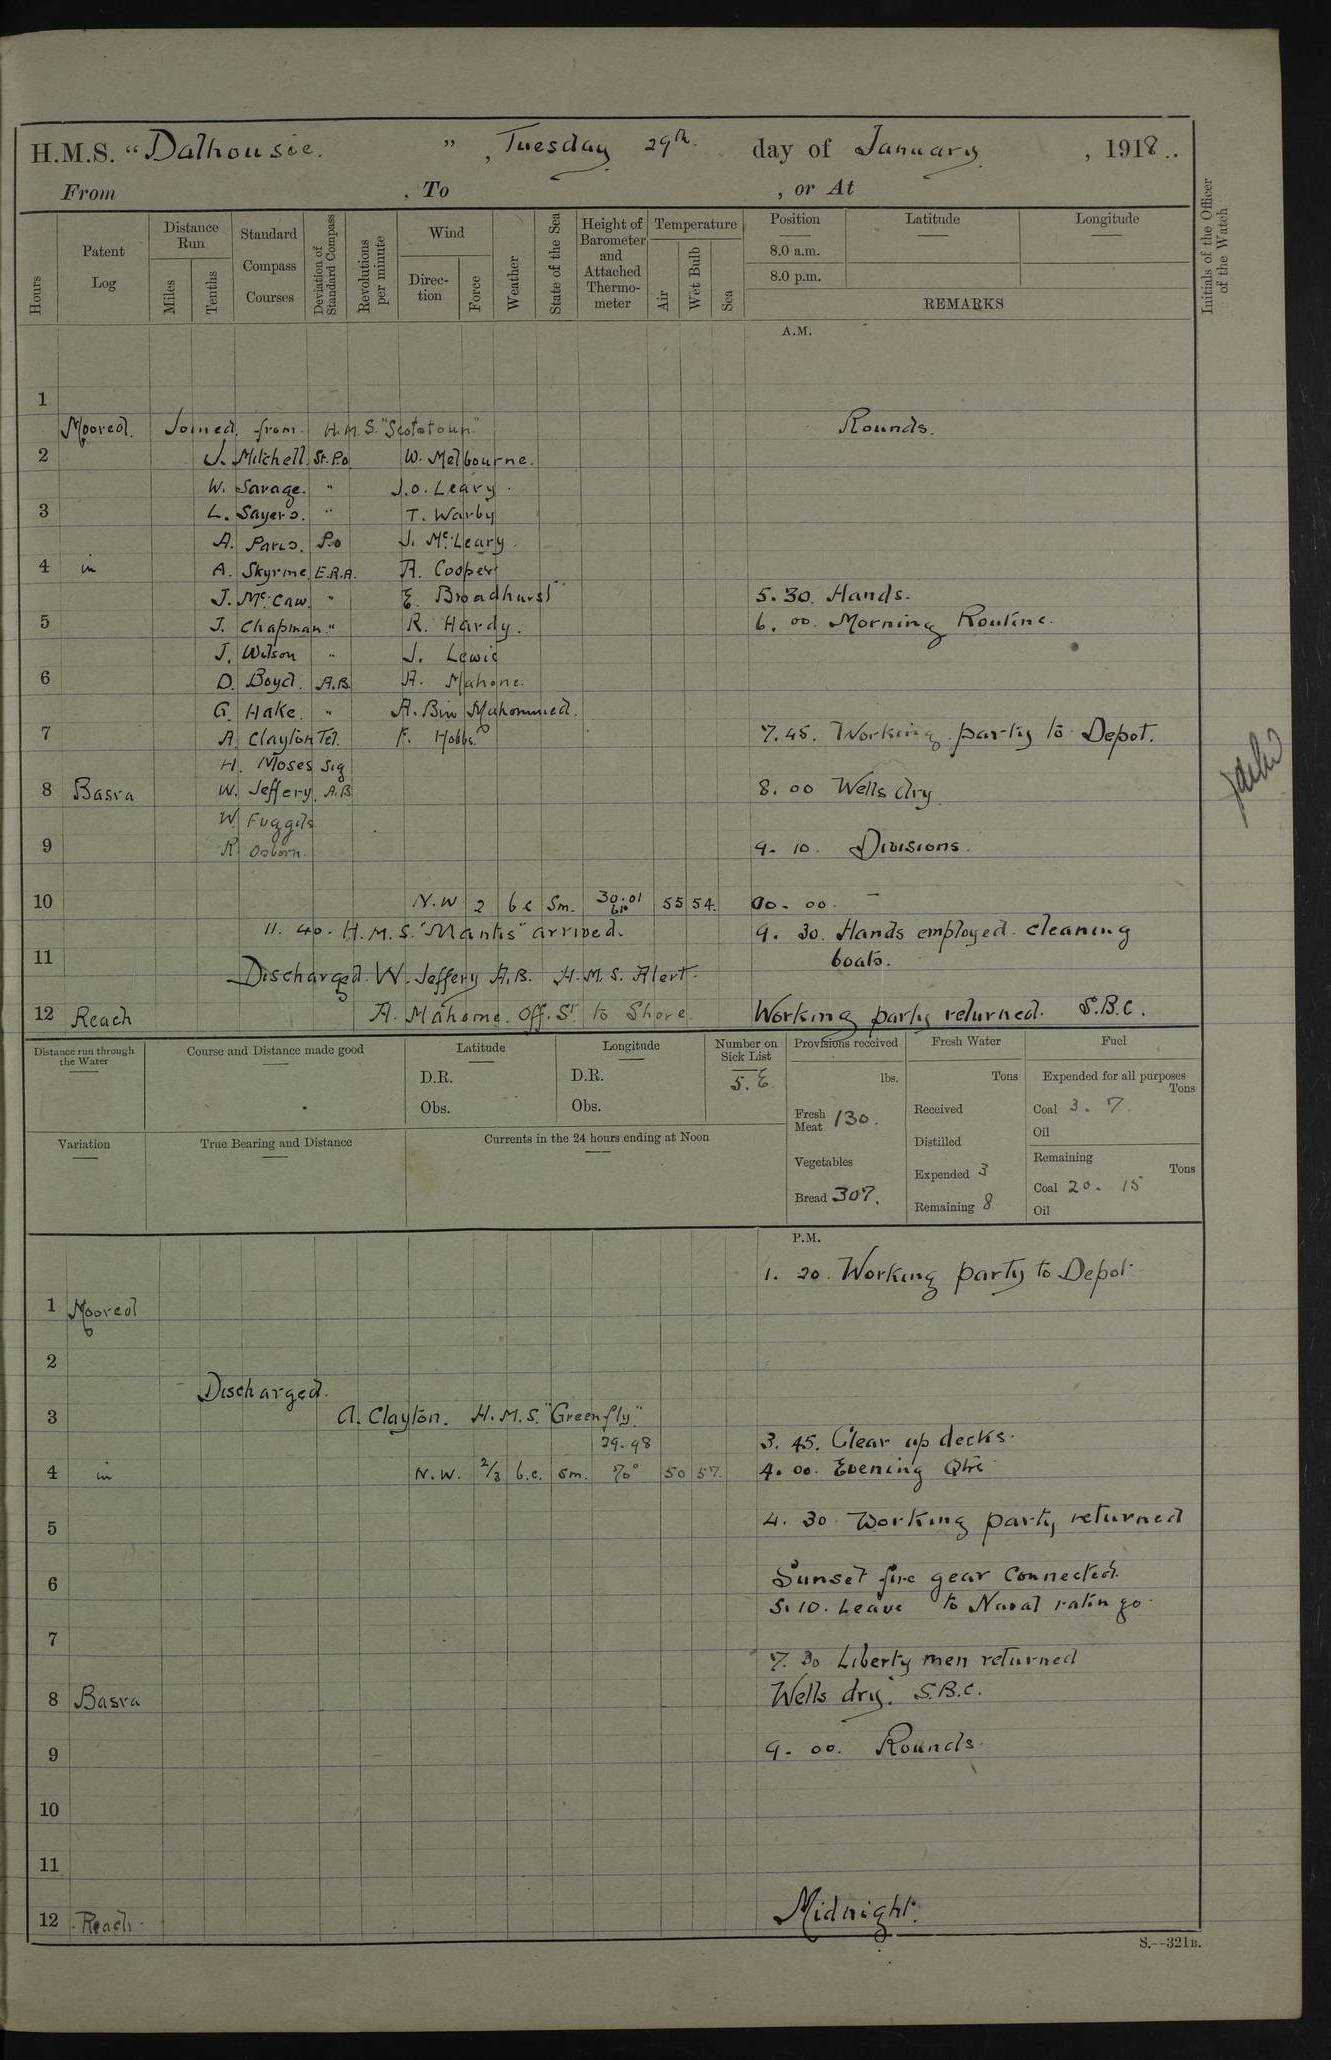 H.M.S. “Dalhousie.” , Tuesday 29th day of January , 1918..
From , To , or At
Hours
Patent Log
Distance Run
Miles
Tenths
Standard Compass Courses
Deviation of Standard Compass
Revolutions per minute
Wind
Direction
Force
Weather
State of the Sea
Height of Barometer and Attached Thermometer
Temperature
Air
Wet Bulb
Sea
Position
8.0 a.m.
8.0 p.m.
Latitude
Longitude
REMARKS
Initials of the Officer of the Watch
A.M.
1
Moored. Joined from H.M.S. "Scotstoun" Rounds.
2 J. Mitchell St. P.o W. Melbourne.
W. Savage. " J.o. Leary.
3 L. Sayers. " T. Warby
A. Paris. P.o J. Mc Leary.
4 in A. Skyrme E.R.A. A. Cooper
J. Mc Caw. " E. Broadhurst 5. 30. Hands.
5 J. Chapman " R. Hardy. 6. 00. Morning Routine.
J. Wilson " J. Lewis
6 D. Boyd. A.B. A. Mahone.
G. Hake. " A. Bin Mahommed.
7 A. Clayton Tel. F. Hobbs. 7.45. Working party to Depot.
H. Moses Sig
8 Basra W. Jeffery. A.B 8. 00 Wells dry
W Fuggils
9 R Osborn. 9. 10. Divisions.
10 N.W 2 bc Sm. 30.01 55 54. 10. 00.
11. 40. H.M.S. "Mantis" arrived. 9. 30. Hands employed cleaning
11 boats.
Discharged. W. Jeffery A.B. H.M.S. Alert.
12 Reach A. Mahome. Off. St to Shore. Working party returned. S.B.C.
Distance run through the Water
Course and Distance made good
Latitude
D.R.
Obs.
Longitude
D.R.
Obs.
Number on Sick List
5. E.
Provisions received
lbs.
Fresh Meat 130.
Vegetables
Bread 307.
Fresh Water
Tons
Received
Distilled
Expended 3
Remaining 8
Fuel
Expended for all purposes
Tons
Coal 3. 7.
Oil
Remaining
Tons
Coal 20. 15
Oil
Variation
True Bearing and Distance
Currents in the 24 hours ending at Noon
P.M.
1. 20. Working party to Depot
1 Moored
2
Discharged.
3 A. Clayton. H.M.S. "Greenfly"
29.98 3. 45. Clear up decks.
4 in N.W. 2/3 b.c. sm. 70° 50 57. 4. 00. Evening Qtrs
5 4. 30 Working party returned
Sunset fire gear Connected.
6 5.10. Leave to Naval ratings
7
7. 30 Liberty men returned
8 Basra Wells dry. S.B.C.
9 9. 00. Rounds.
10
11
12 Reach Midnight.
S.—321B.